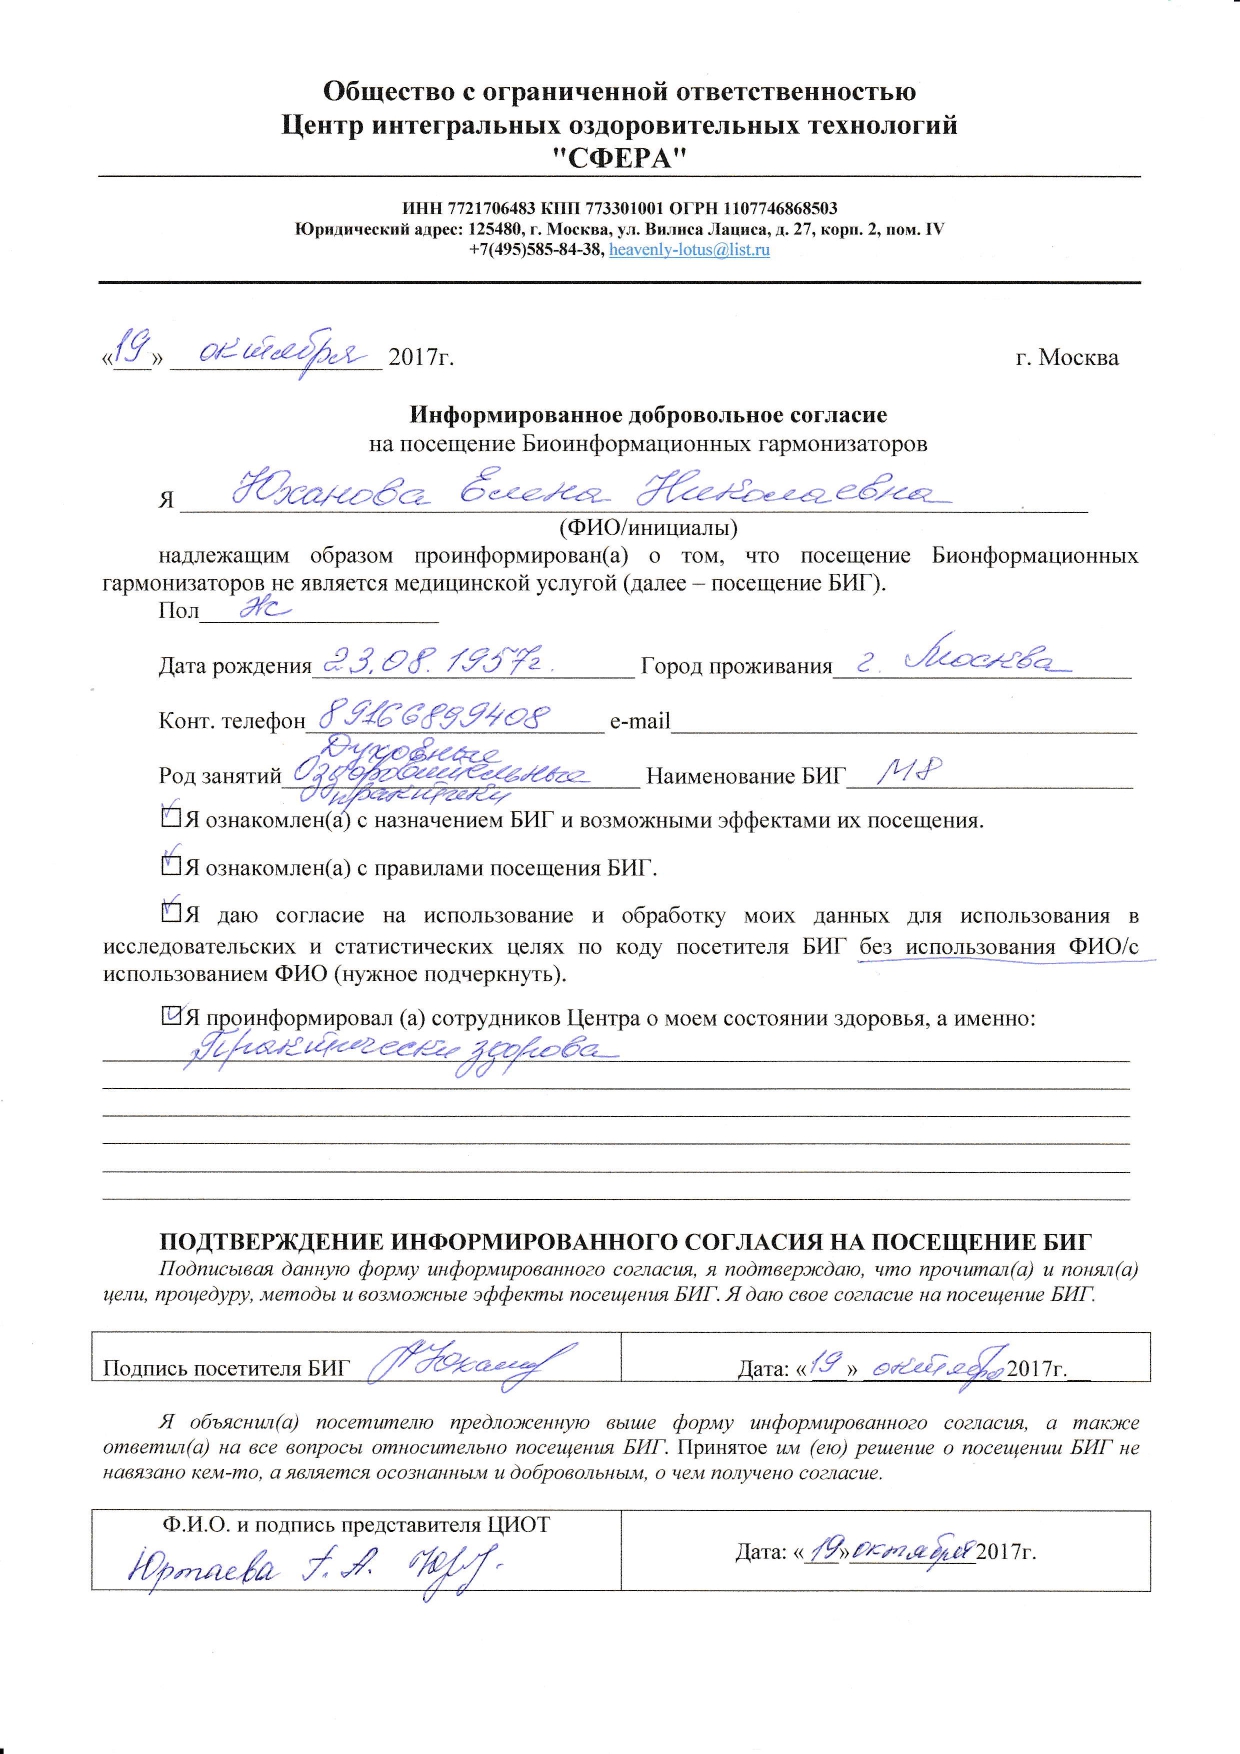 Общество с ограниченной ответственностью
Центр интегральных оздоровительных технологий
"СФЕРА"
ИНН 7721706483 КПП 773301001 ОГРН 1107746868503
Юридический адрес: 125480, г. Москва, ул. Вилиса Лациса, д. 27, корп. 2, пом. IV
+7(495)585-84-38, heavenly-lotus@list.ru
«19» октября 2017г. г. Москва
Информированное добровольное согласие
на посещение Биоинформационных гармонизаторов
Я Юханова Елена Николаевна
(ФИО/инициалы)
надлежащим образом проинформирован(а) о том, что посещение Бионформационных
гармонизаторов не является медицинской услугой (далее – посещение БИГ).
Пол жс
Дата рождения 23.08.1957г. Город проживания г. Москва
Конт. телефон 89166899408 e-mail
Духовные
Род занятий Оздоровительные Наименование БИГ М8
практики
Я ознакомлен(а) с назначением БИГ и возможными эффектами их посещения.
Я ознакомлен(а) с правилами посещения БИГ.
Я даю согласие на использование и обработку моих данных для использования в
исследовательских и статистических целях по коду посетителя БИГ без использования ФИО/с
использованием ФИО (нужное подчеркнуть).
Я проинформировал (а) сотрудников Центра о моем состоянии здоровья, а именно:
Практически здорова
ПОДТВЕРЖДЕНИЕ ИНФОРМИРОВАННОГО СОГЛАСИЯ НА ПОСЕЩЕНИЕ БИГ
Подписывая данную форму информированного согласия, я подтверждаю, что прочитал(а) и понял(а)
цели, процедуру, методы и возможные эффекты посещения БИГ. Я даю свое согласие на посещение БИГ.
Подпись посетителя БИГ Дата: «19» октября 2017г.
Я объяснил(а) посетителю предложенную выше форму информированного согласия, а также
ответил(а) на все вопросы относительно посещения БИГ. Принятое им (ею) решение о посещении БИГ не
навязано кем-то, а является осознанным и добровольным, о чем получено согласие.
Ф.И.О. и подпись представителя ЦИОТ
Юртаева Г. А. Дата: «19»октября2017г.